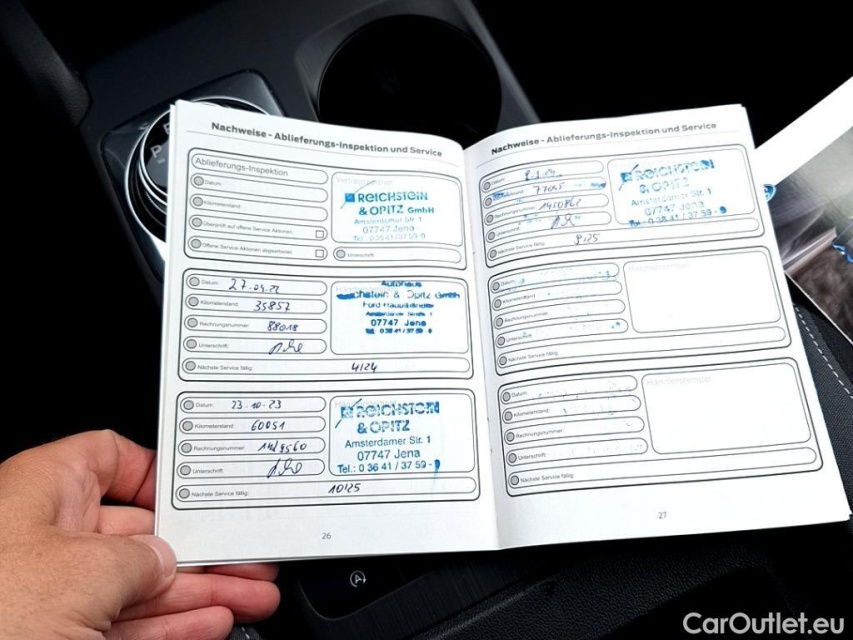 Nachweise - Ablieferungs-Inspektion und Service
Ablieferungs-Inspektion
Datum:
Kilometerstand:
Überprüft auf offene Service Aktionen:
Offene Service Aktionen abgearbeitet:
REICHSTEIN
& OPITZ GmbH
Amsterdamer Str. 1
07747 Jena
Unterschrift:
Datum: 27.04.22
Kilometerstand: 35857
Rechnungsnummer: 88018
Unterschrift:
Nächste Service fällig: 4/24
Autohaus
& Opitz GmbH
Ford Haupthändler
Amsterdamer Straße 1
07747 Jena
Datum: 23.10.23
Kilometerstand: 60051
Rechnungsnummer:
Unterschrift:
Nächste Service fällig: 10/25
REICHSTEIN
& OPITZ
Amsterdamer Str. 1
07747 Jena
Tel.: 0 36 41 / 37 59 -
26
Nachweise - Ablieferungs-Inspektion und Service
Datum:
77045
Rechnungsnummer:
Unterschrift:
Nächste Service fällig: 9/25
REICHSTEIN
& OPITZ
Amsterdamer Str. 1
07747 Jena
Tel.: 0 36 41 / 37 59 - 0
Datum:
Kilometerstand:
Rechnungsnummer:
Unterschrift:
Nächste Service fällig:
Datum:
Kilometerstand:
Rechnungsnummer:
Unterschrift:
Nächste Service fällig:
Händlerstempel
27
CarOutlet.eu